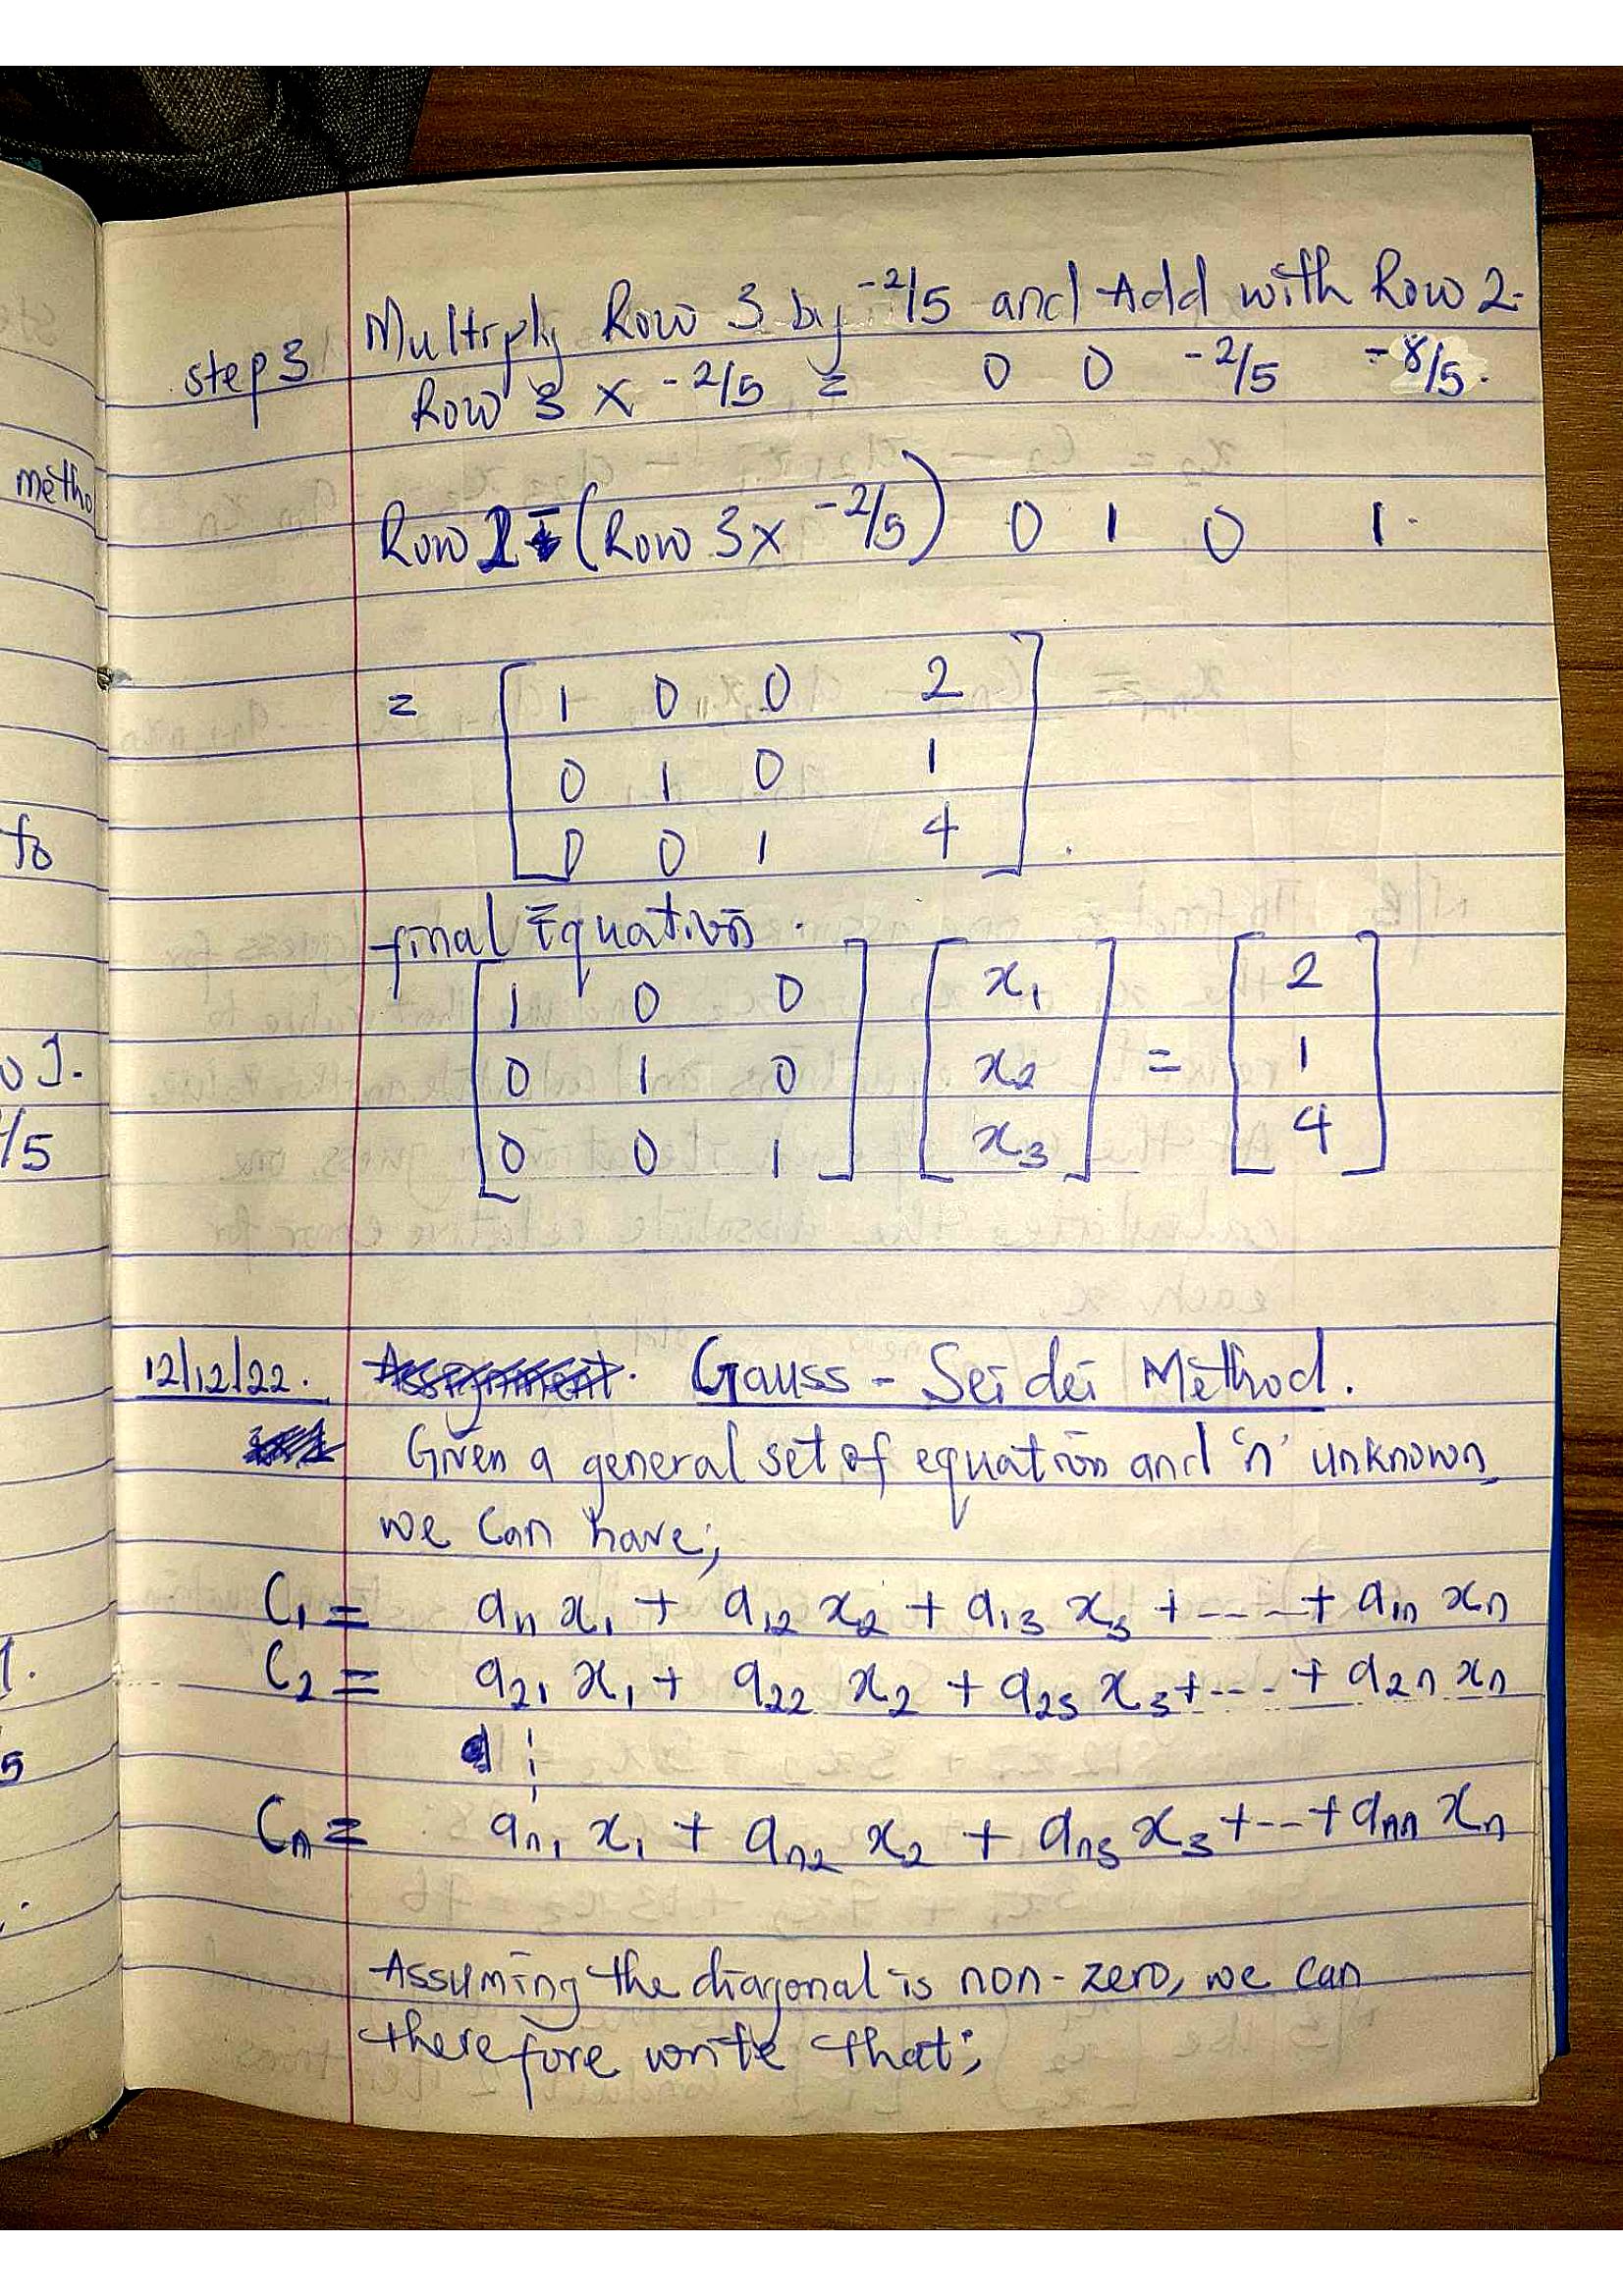 metho
to
o 1.
1/5
1.
5
step 3 Multiply Row 3 by -2/5 and Add with Row 2.
Row 3 x -2/5 = 0 0 -2/5 -8/5.
Row 2 - (Row 3 x -2/5) 0 1 0 1.
= [ 1 0 0 2
0 1 0 1
0 0 1 4 ] .
final Equation.
[ 1 0 0 ] [ x₁ ] [ 2 ]
[ 0 1 0 ] [ x₂ ] = [ 1 ]
[ 0 0 1 ] [ x₃ ] [ 4 ]
12/12/22. Assignment. Gauss - Seidei Method.
Given a general set of equation and 'n' unknown
we can have;
C₁ = a₁₁ x₁ + a₁₂ x₂ + a₁₃ x₃ + ----+ a₁ₙ xₙ
C₂ = a₂₁ x₁ + a₂₂ x₂ + a₂₃ x₃ + --- + a₂ₙ xₙ
Cₙ = aₙ₁ x₁ + aₙ₂ x₂ + aₙ₃ x₃ +--+ aₙₙ xₙ
Assuming the diagonal is non-zero, we can
therefore write that;